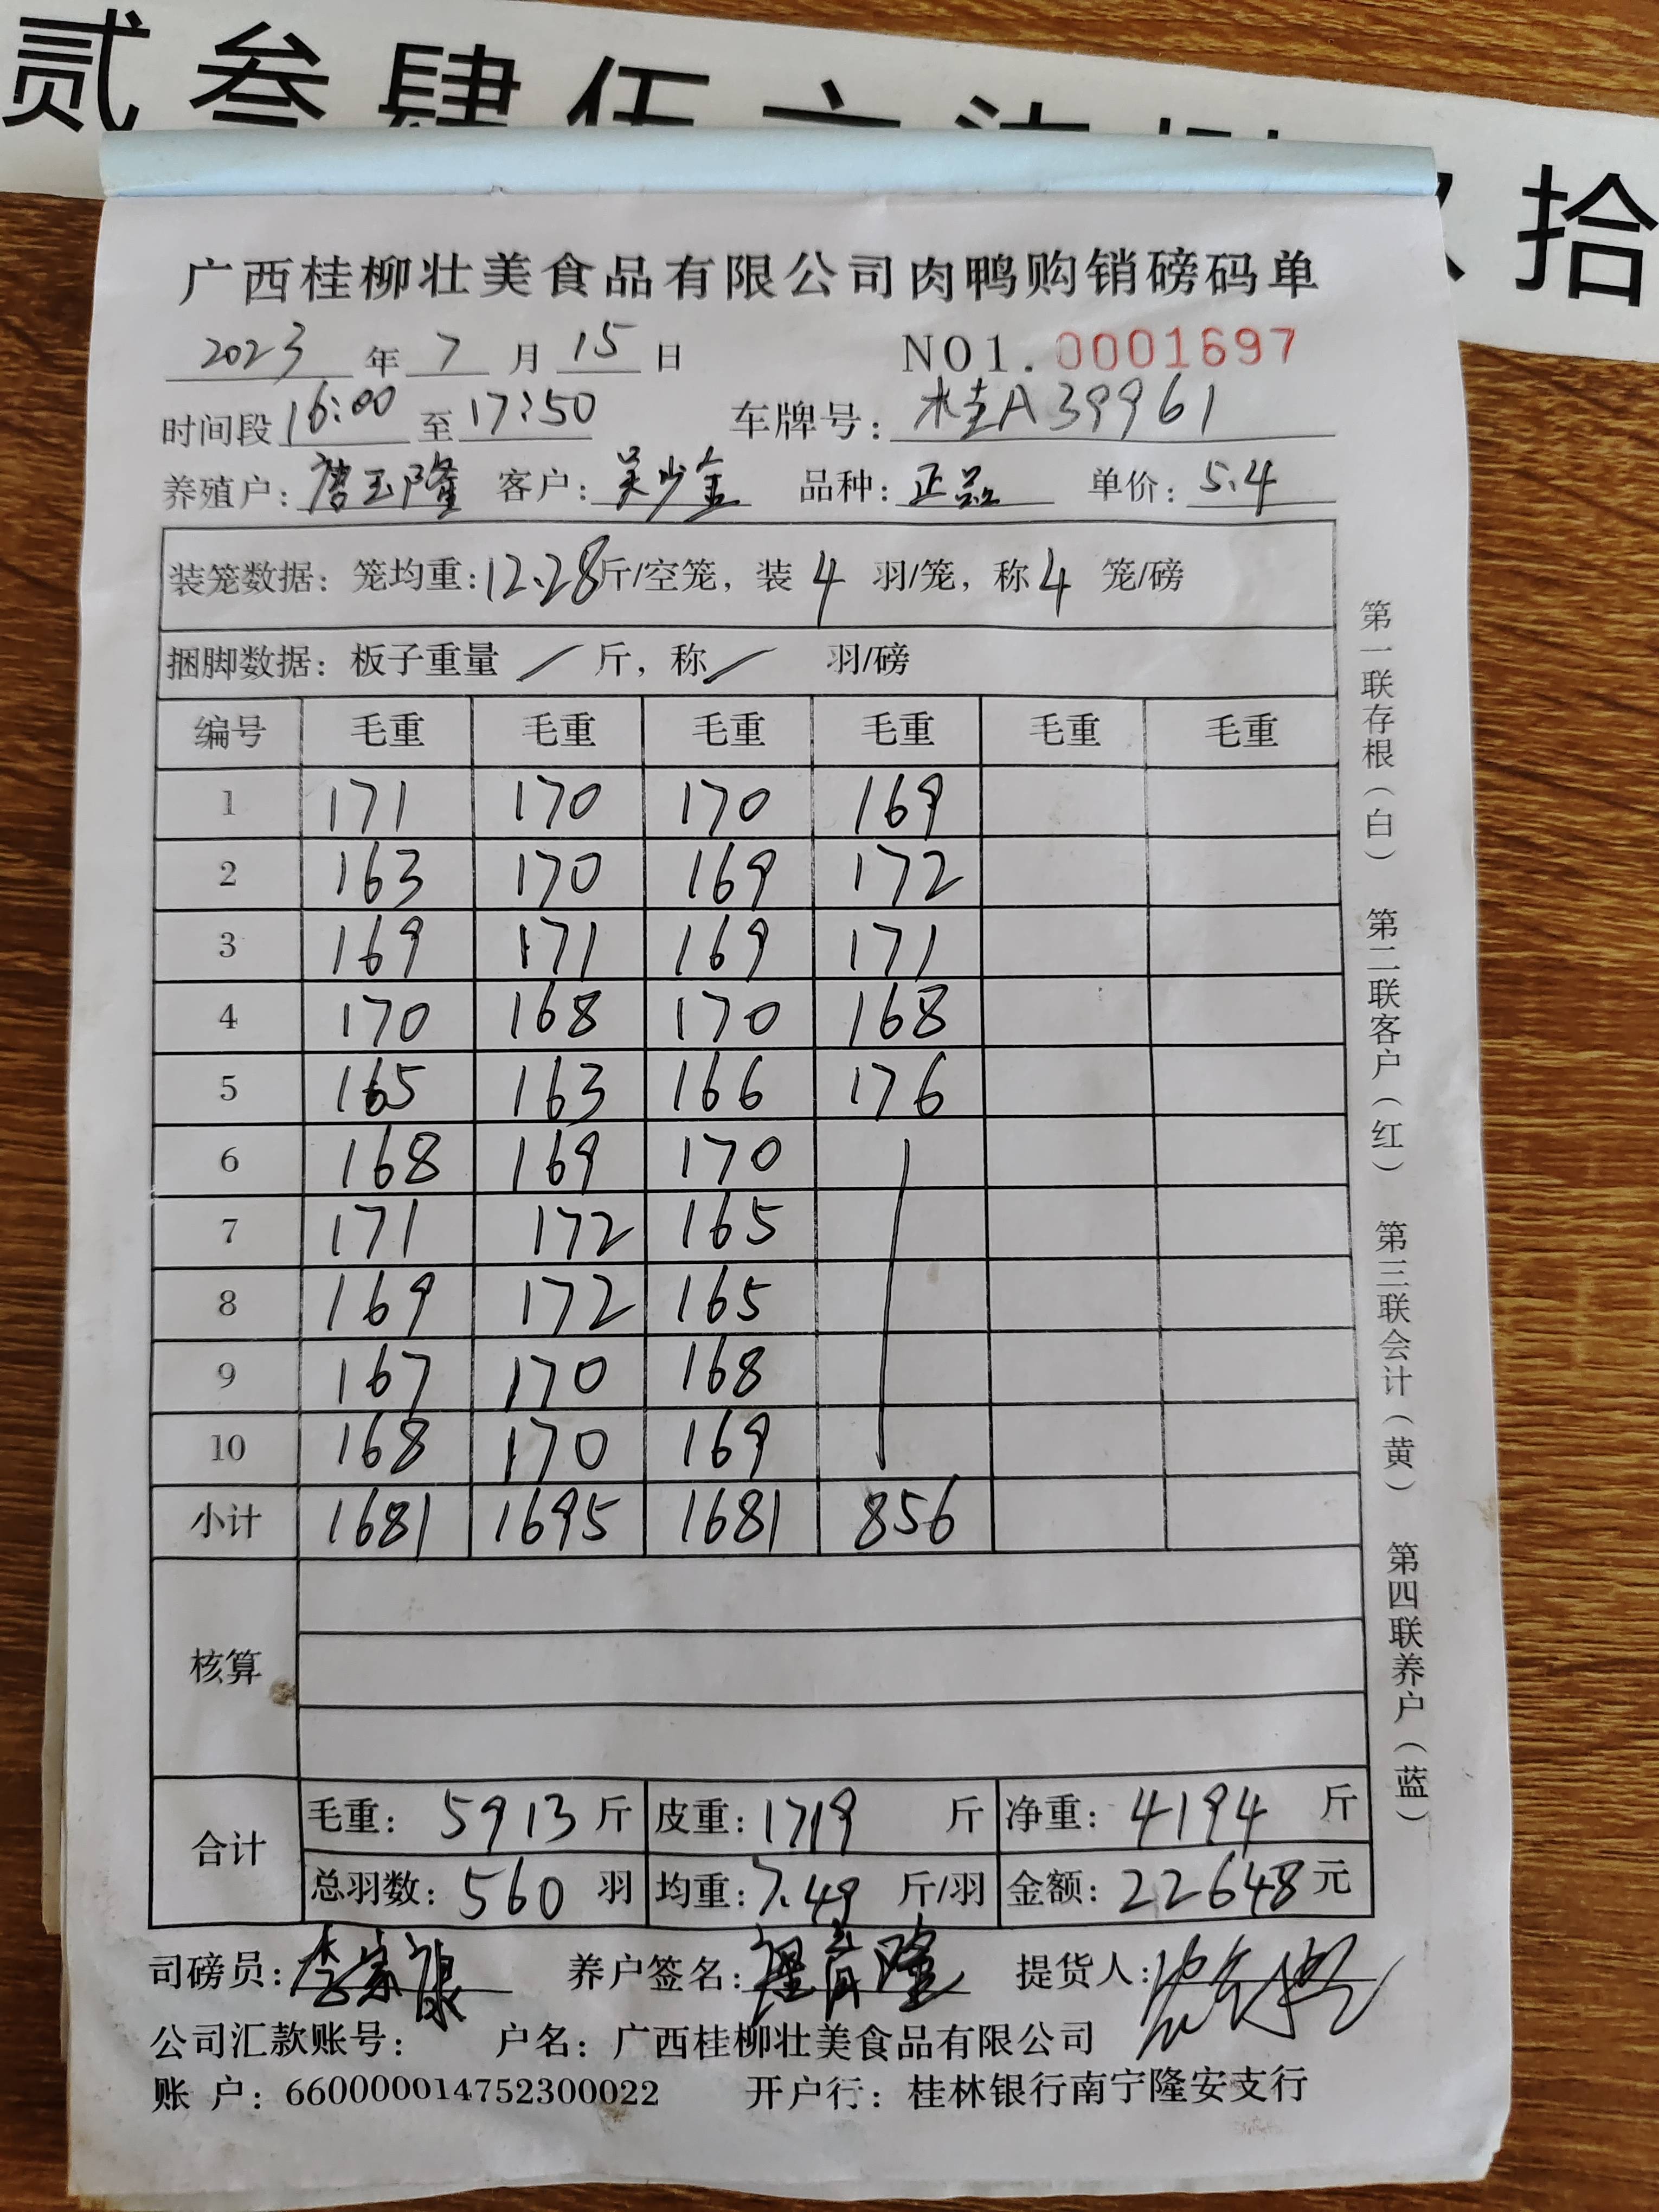 贰叁肆伍六柒捌玖拾
广西桂柳壮美食品有限公司肉鸭购销磅码单
2023年7月15日 NO1.0001697
时间段16:00至17:50 车牌号:桂A39961
养殖户:唐玉隆 客户:吴少金 品种:正品 单价:5.4
装笼数据:笼均重:12.28斤/空笼,装4羽/笼,称4笼/磅
捆脚数据:板子重量/斤,称/羽/磅
编号 毛重 毛重 毛重 毛重 毛重 毛重
1 171 170 170 169
2 163 170 169 172
3 169 171 169 171
4 170 168 170 168
5 165 163 166 176
6 168 169 170
7 171 172 165
8 169 172 165
9 167 170 168
10 168 170 169
小计 1681 1695 1681 856
核算
合计
毛重:5913斤 皮重:1719斤 净重:4194斤
总羽数:560羽 均重:7.49斤/羽 金额:22648元
司磅员:李家 养户签名: 隆 提货人:
公司汇款账号: 户名:广西桂柳壮美食品有限公司
账 户:660000014752300022 开户行:桂林银行南宁隆安支行
第一联存根(白) 第二联客户(红) 第三联会计(黄) 第四联养户(蓝)